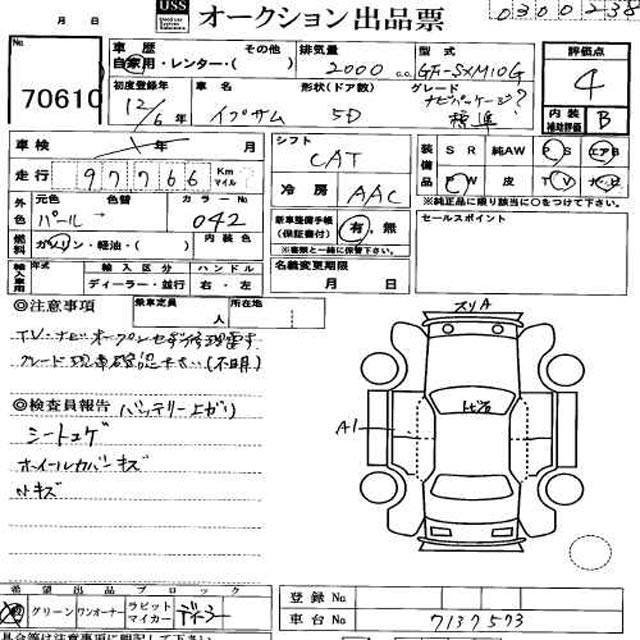 月 日
USS
オークション出品票
0300238
No.
70610
車歴
その他
自家用・レンター・( )
排気量
2000 c.c.
型式
GF-SXM10G
評価点
4
初度登録年
12/6年
車名
イプサム
形状(ドア数)
5D
グレード
ナビパッケージ?
標準
内装
補助評価
B
車検
年 月
走行
97766
Km
マイル
シフト
CAT
冷房
AAC
装備品
SR 純AW PS エアB
PW 皮 TV ナビ
※純正品に限り該当に○をつけて下さい。
外色
元色
パール
色替
→
カラーNo.
042
燃料
ガソリン・軽油・( )
内装色
新車整備手帳
(保証書付)
有・無
※書類と一緒に保管下さい。
名義変更期限
月 日
セールスポイント
輸入車用
年式
輸入区分
ディーラー・並行
ハンドル
右・左
◎注意事項
乗車定員
人
所在地
TV・ナビオープンせず修理要す
グレード現車確認下さい(不明)
◎検査員報告
バッテリー上がり
シートコゲ
ホイールカバーキズ
内キズ
スリA
トビ石
A1
希望出品ブロック
グリーン
ワンオーナー
ラビット
マイカー
ディーラー
登録No.
車台No.
7137573